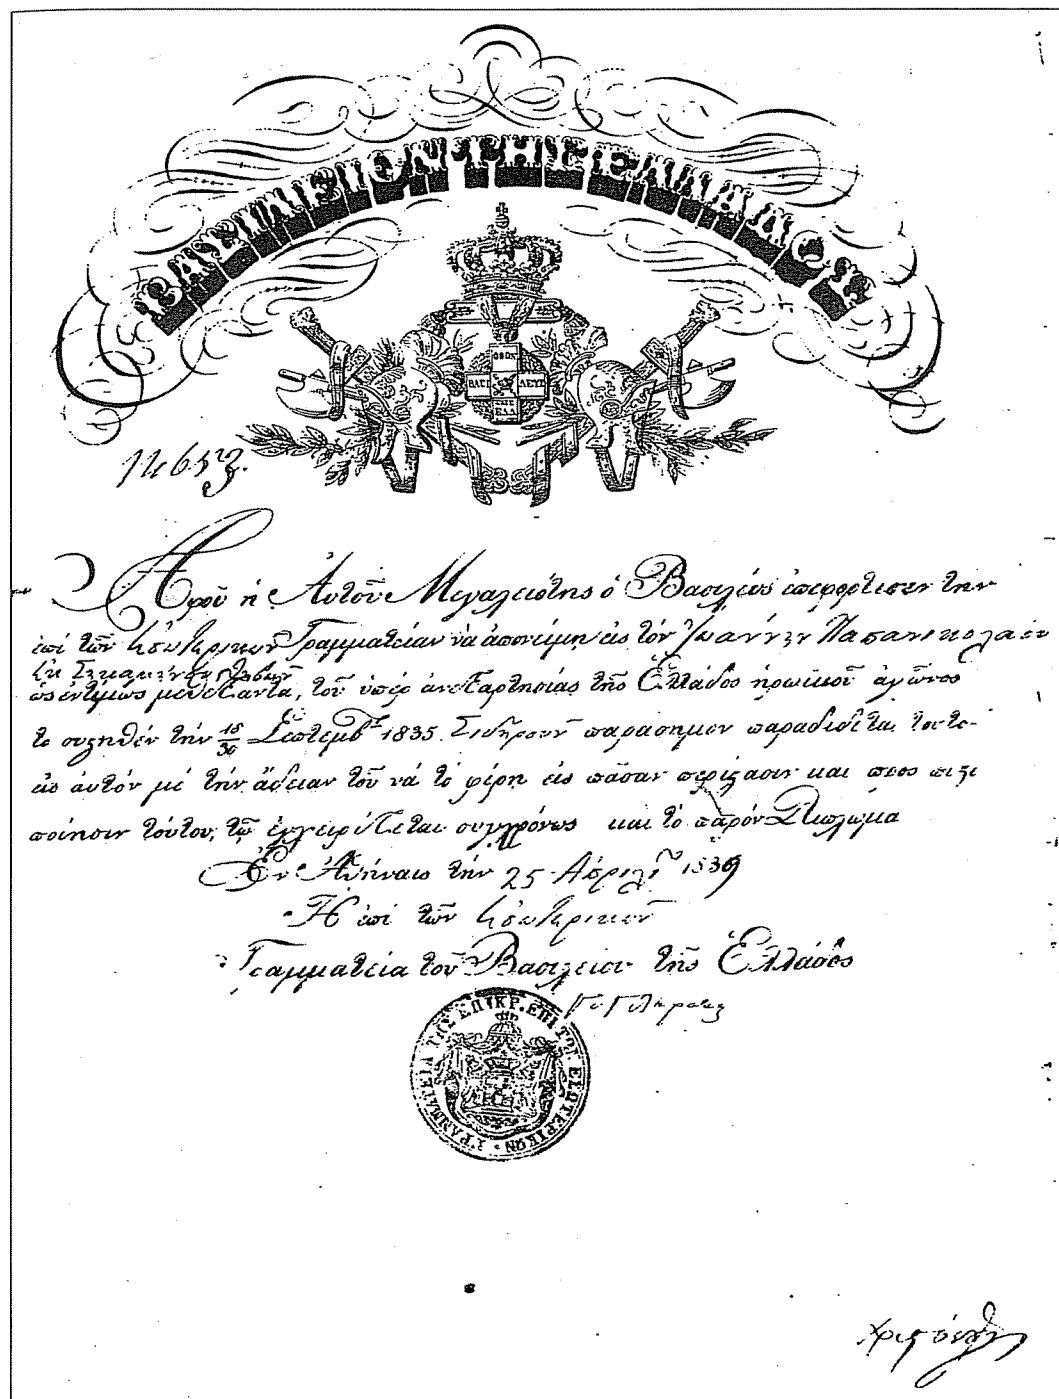 ΒΑΣΙΛΕΙΟΝ ΤΗΣ ΕΛΛΑΔΟΣ
ΟΘΩΝ
ΒΑΣΙ ΛΕΥΣ
ΤΗΣ
ΕΛΛ
Ἀφοῦ ἡ Αὐτοῦ Μεγαλειότης ὁ Βασιλεύς ἐπεφόρτισεν τὴν
ἐπί τῶν Ἐσωτερικῶν Γραμματείαν νὰ ἀπονείμῃ εἰς τόν Ἰωάννην Παπανικολάου
ὡς ἐντίμως μεθέξαντα, τοῦ ὑπέρ ἀνεξαρτησίας τῆς Ἑλλάδος ἡρωϊκοῦ ἀγῶνος
τὸ συςηθέν τὴν 18/30 Σεπτεμβ. 1835. Σιδηροῦν παράσημον παραδίδεται τοῦτο
εἰς αὐτόν μέ τήν ἄδειαν τοῦ νά τό φέρῃ εἰς πᾶσαν περίςασιν και προς πιςο
ποίησιν τούτου, τῷ ἐγχειρίζεται συγχρόνως και τὸ παρόν Δίπλωμα
Ἐν Ἀθήναις τήν 25 Ἀπριλίου 1839
Ἡ ἐπί τῶν Ἐσωτερικῶν
Γραμματεία τοῦ Βασιλείου τῆς Ἑλλάδος
ΓΡΑΜΜΑΤΕΙΑ ΤΗΣ ΕΠΙΚΡ. ΕΠΙ ΤΩΝ ΕΣΩΤΕΡΙΚΩΝ